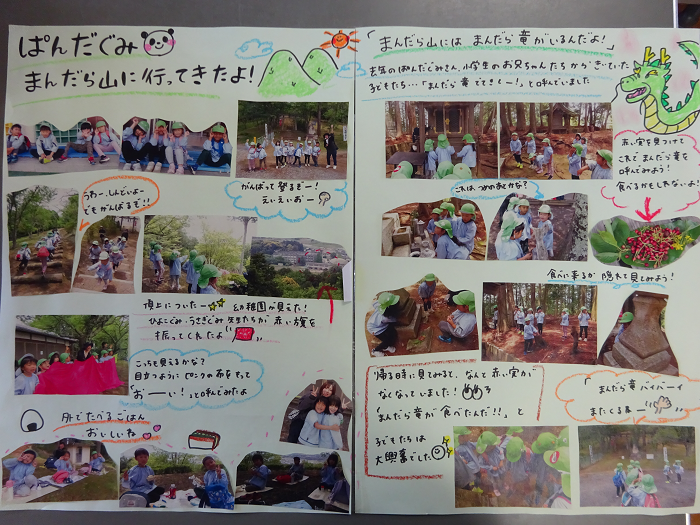 ぱんだぐみ
まんだら山に行ってきたよ!
うわー、しんどいよー
でもがんばるぞ!!
がんばって登るぞー!
えいえいおー
頂上についたー 幼稚園が見えた!
ひよこぐみ・うさぎぐみ・先生たちが赤い旗を
振ってくれたよ
こっちも見えるかな?
目立つようにピンクの布をもって
「おーい!」と呼んでみたよ
外でたべるごはん
おいしいね
「まんだら山には まんだら竜がいるんだよ!」
去年のぱんだぐみさん、小学生のお兄ちゃんたちからきいていた
子どもたち…「まんだら竜でてきてー!」と呼んでいました
赤い実を見つけて
これでまんだら竜を
呼んでみよう!
食べるかもしれないよ!
これは つめのあとかな?
食べに来るか隠れて見てみよう!
帰る時に見てみると、なんと赤い実が
なくなっていました!
「まんだら竜が食べたんだ!!」と
子どもたちは
大興奮でした
まんだら竜バイバーイ
またくるねー